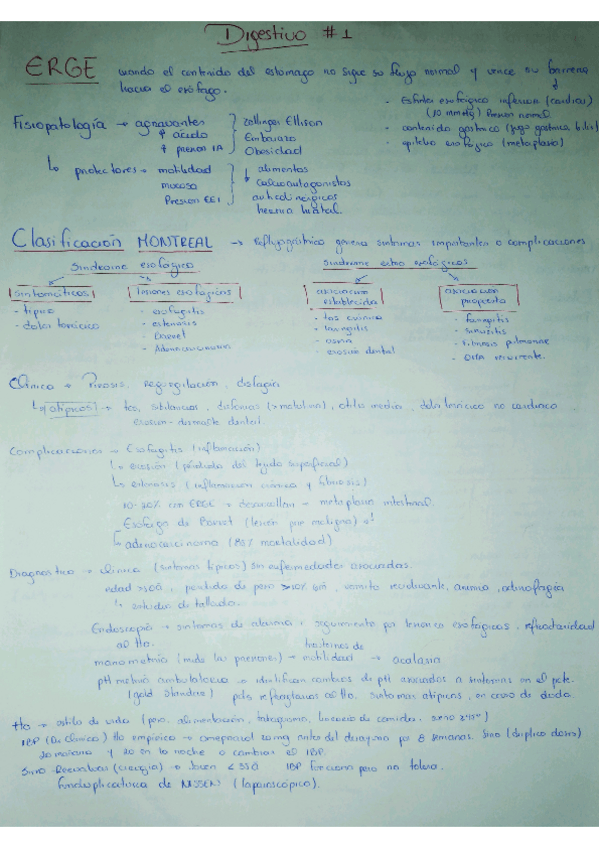 Digestivo #1
ERGE cuando el contenido del estomago no sigue su flujo normal y vence su barrera
hacia el esófago.
- Esfinter esofagico inferior (cardias)
(10 mmHg) Presion normal
- contenido gastrico (jugo gastrico, bilis)
- epitelio esofagico (metaplasia)
Fisiopatología → agravantes
↑ acido
↑ presion IA
Zollinger Ellison
Embarazo
Obesidad
↳ protectores → motilidad
mucosa
Presion EEI
↓ alimentos
calcioantagonistas
anticolinergicos
hernia hiatal.
Clasificación MONTREAL → Reflujo gástrico genera sintomas importantes o complicaciones
Sindrome esofágico
Sindrome extra esofágicos
sintomáticos
- tipico
- dolor toracico
lesiones esofágicas
- esofagitis
- estenosis
- Barret
- Adenocarcinoma
asociacion establecida
- tos cronica
- laringitis
- asma
- erosión dental
asociacion propuesta
- faringitis
- sinusitis
- fibrosis pulmonar
- OMA recurrente.
Clínica → Pirosis, Regurgitacion, disfagia
↳ (atipicos) → tos, sibilancias, disfonia (> matutina), otitis media, dolor toracico no cardiaco
erosion - esmalte dental
Complicaciones → Esofagitis (inflamación)
↳ erosión (pérdida del tejido superficial)
↳ estenosis (inflamacion cronica y fibrosis)
10-20% con ERGE → desarrollan → metaplasia intestinal.
Esofago de Barret (lesión pre maligna)
↳ adenocarcinoma (85% mortalidad)
Diagnostico → clinica (sintomas tipicos) sin enfermedades asociadas.
edad >50ã, perdida de peso >10% 6m, vomito recidivante, anemia, odinofagia
↳ estudios de tallado.
Endoscopia → sintomas de alarma, seguimiento por lesiones esofagicas, refractariedad
al tto.
manometria (mide las presiones) → trastornos de motilidad → acalasia
pH metria ambulatoria → identifican cambios de pH asociados a sintomas en el pcte.
(gold standard) pcts refractarios al tto. sintomas atipicos, en caso de duda.
tto → estilo de vida (peso, alimentación, tabaquismo, horario de comidas
IBP (Dx clinico) tto empirico → omeprazol 20mg antes del desayuno por 8 semanas. Sino (duplico dosis)
20 mañana y 20 en la noche o cambias el IBP.
Sino Recurrimos (cirugia) → joven < 55ã IBP funciona pero no tolera.
Funduplicatura de NISSEN (laparoscópico).